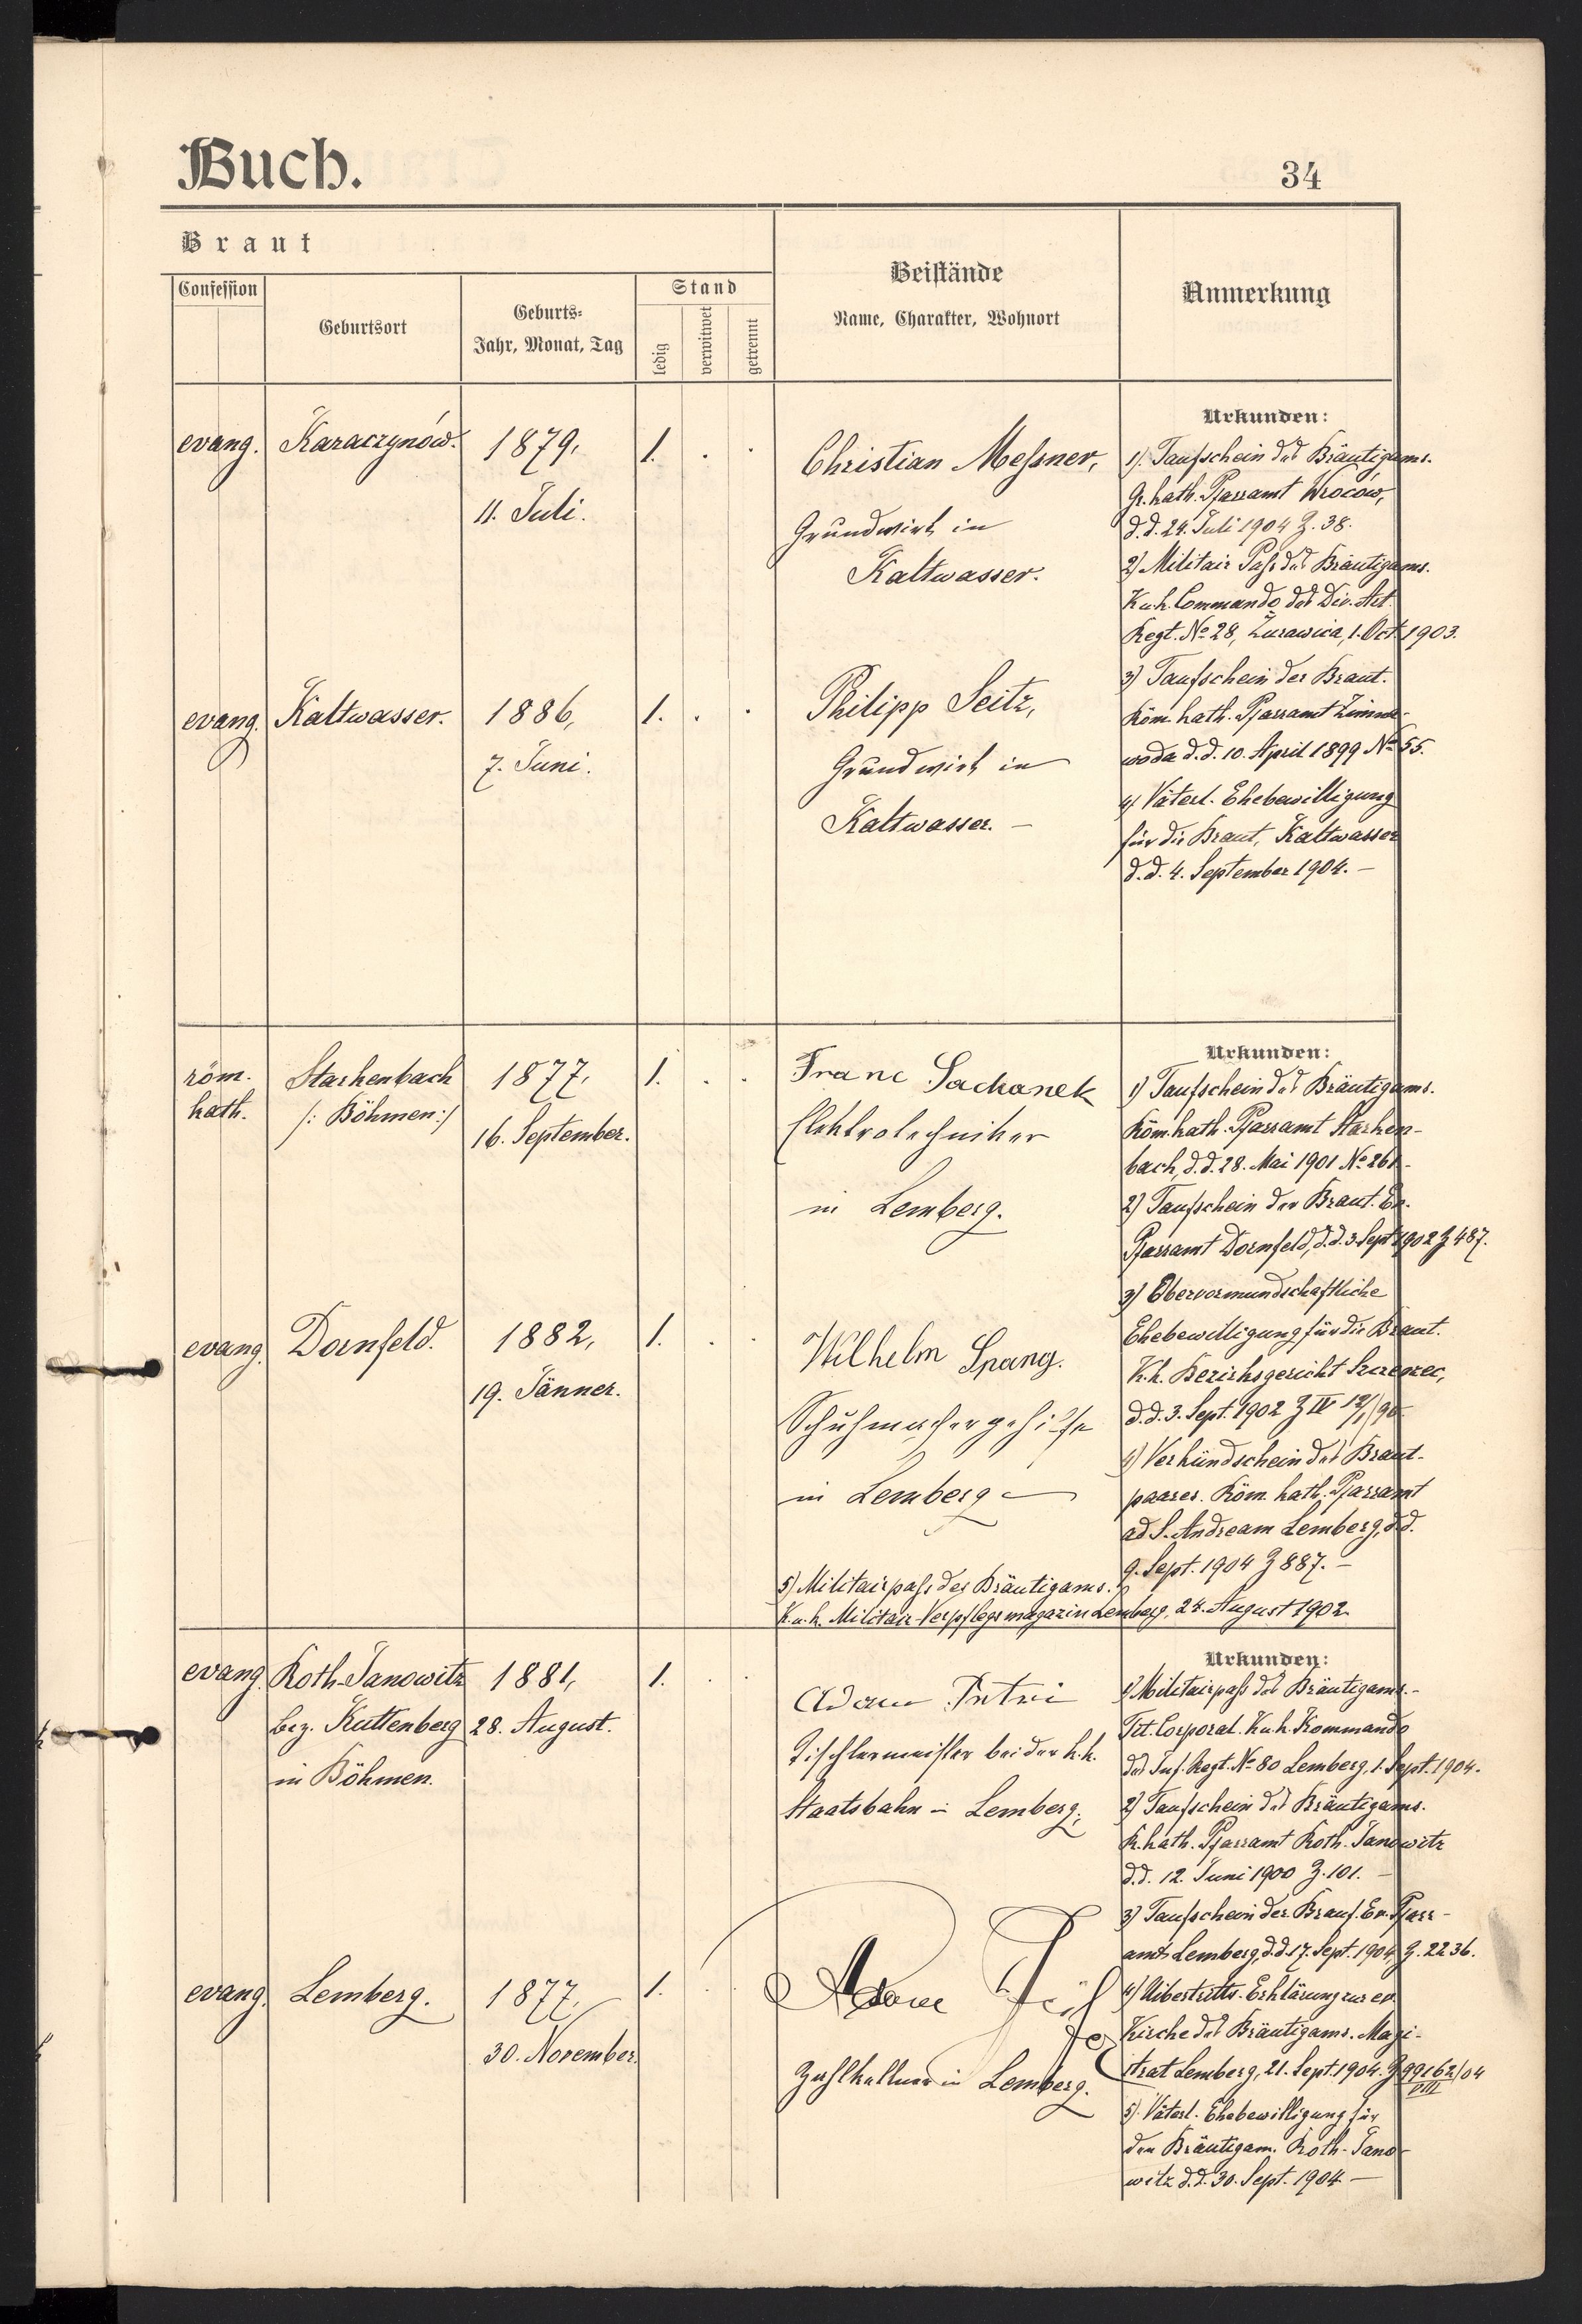 Buch.
34
Braut
Confession
Geburtsort
Geburts-
Jahr, Monat, Tag
Stand
ledig
verwitwet
getrennt
Beistände
Name, Charakter, Wohnort
Anmerkung
evang.
Karaczynów.
1879,
11. Juli.
1. . .
Christian Meßner,
Grundwirt in
Kaltwasser.
evang.
Kaltwasser.
1886,
7. Juni.
1. . .
Philipp Seitz,
Grundwirt in
Kaltwasser. –
Urkunden:
1) Taufschein des Bräutigams.
Gr. kath. Pfarramt Wrocow,
d. d. 24. Juli 1904 Z. 38.
2) Militair Paß des Bräutigams.
K. u. k. Commando des Div. Art.
Regt. No 28, Żurawica, 1. Oct. 1903.
3) Taufschein der Braut.
Röm. kath. Pfarramt Zimna-
woda d. d. 10. April 1899 No 55.
4) Väterl. Ehebewilligung
für die Braut, Kaltwasser
d. d. 4. September 1904. –
röm.
kath.
Starkenbach
/: Böhmen :/
1877,
16. September.
1. . .
Franc Sackanek
Elektrotechniker
in Lemberg.
evang.
Dornfeld.
1882,
19. Jänner.
1. . .
Wilhelm Spang.
Schuhmachergehilfe
in Lemberg –
Urkunden:
1) Taufschein des Bräutigams.
Röm. kath. Pfarramt Starken-
bach, d. d. 28. Mai 1901 No 261.
2) Taufschein der Braut. Ev.
Pfarramt Dornfeld, d. d. 3. Sept 1902 Z 487.
3) Obervormundschaftliche
Ehebewilligung für die Braut.
K. k. Bezirksgericht Szczerzec,
d. d. 3. Sept. 1902 Z IV
4) Verkündschein des Braut-
paares. Röm. kath. Pfarramt
ad S. Andream Lemberg, d. d.
9. Sept. 1904 Z 887. –
5) Militairpaß des Bräutigams.
K. u. k. Militair-Verpflegsmagazin Lemberg, 24. August 1902.
evang.
Roth-Janowitz
bez. Kuttenberg
in Böhmen.
1881,
28. August.
1. . .
Adam Petri
Tischlermeister bei der k. k.
Staatsbahn in Lemberg.
evang.
Lemberg.
1877,
30. November.
1. . .
Adam
Zahlkellner in Lemberg.
Urkunden:
1) Militairpaß des Bräutigams. –
Tit. Corporal. K. u. k. Kommando
des Inf. Regt. No 80 Lemberg, 1. Sept. 1904.
2) Taufschein des Bräutigams.
R. kath. Pfarramt Roth-Janowitz
d. d. 12. Juni 1900 Z. 101. –
3) Taufschein der Braut. Ev. Pfarr-
amt Lemberg, d. d. 17. Sept. 1904, Z. 2236.
4) Uibertritts-Erklärung zur ev.
Kirche des Bräutigams. Magi-
strat Lemberg, 21. Sept. 1904. Z 99162/04
VIII
5) Väterl. Ehebewilligung für
den Bräutigam. Roth-Jano-
witz d. d. 30. Sept. 1904 –